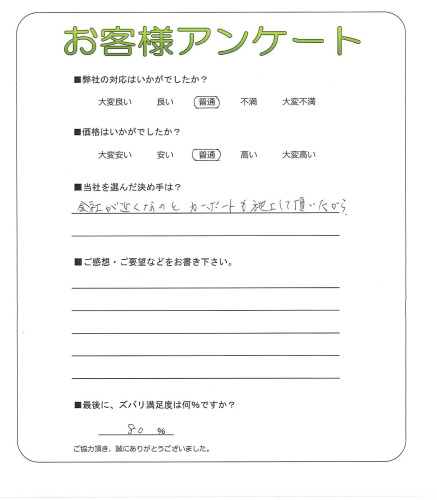 お客様アンケート
■弊社の対応はいかがでしたか？
大変良い 良い 普通 不満 大変不満
■価格はいかがでしたか？
大変安い 安い 普通 高い 大変高い
■当社を選んだ決め手は？
会社が近くなのと カーポートも施工して頂いたから
■ご感想・ご要望などをお書き下さい。
■最後に、ズバリ満足度は何％ですか？
80 ％
ご協力頂き、誠にありがとうございました。